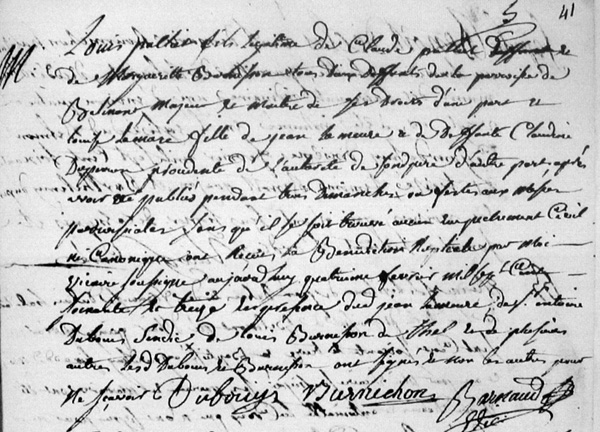 41
Louis palhier fils legitime de Claude palhier deffunt &
de Marguerite Burnichon tous deux deffunts de la paroisse de
Belmont majeur & maitre de ses droits d'une part &
lemare fille de jean lemeure & de deffunte Claudine
procedente de l'autorité de sondpere d'autre part après
avoir été publiés pendant trois dimanches ou festes aux messes
paroissiales sans qu'il se soit trouvé aucun empechement Civil
ni Canonique ont Reçus la Benediction Nuptiale par moi
vicaire soussigné aujourd'huy quatrieme fevrier mil sept Cent
soixante & treize en presence dud jean lemeure de st antoine
Dubouis Sindic de louis Burnichon de thel & de plusieurs
autres lesd Dubouis & Burnichon ont signés & non les autres pour
ne sçavoir Dubouys Burnichon Barnaud
vic